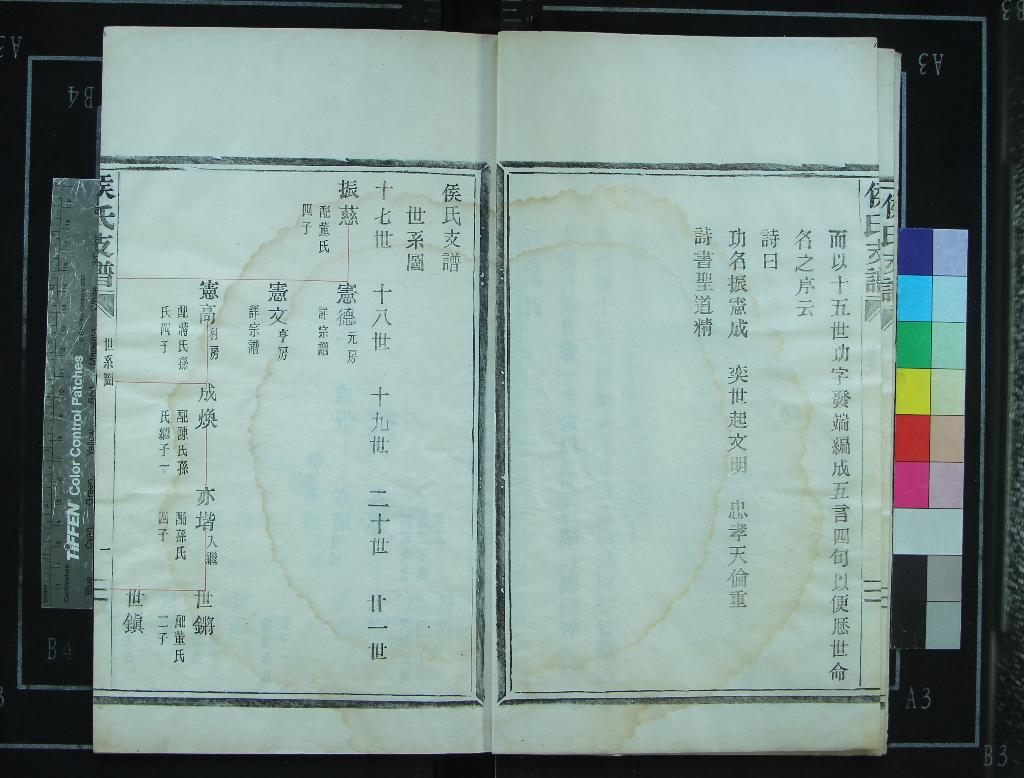 侯氏支譜
而以十五世功字發端編成五言四句以便歷世命
名之序云
詩曰
功名振憲成 奕世起文明 忠孝天倫重
詩書聖道精
侯氏支譜
世系圖
十七世 十八世 十九世 二十世 廿一世
振慈
配董氏
四子
憲德 元房
詳宗譜
憲文 亨房
詳宗譜
憲高 利房
配蔣氏孫
氏四子
成煥
配陳氏孫
氏繼子一
亦堦 入繼
配孫氏
四子
世鏘
配董氏
二子
世鎮
侯氏支譜
世系圖
一
TIFFEN Color Control Patches
A3
B3
B4